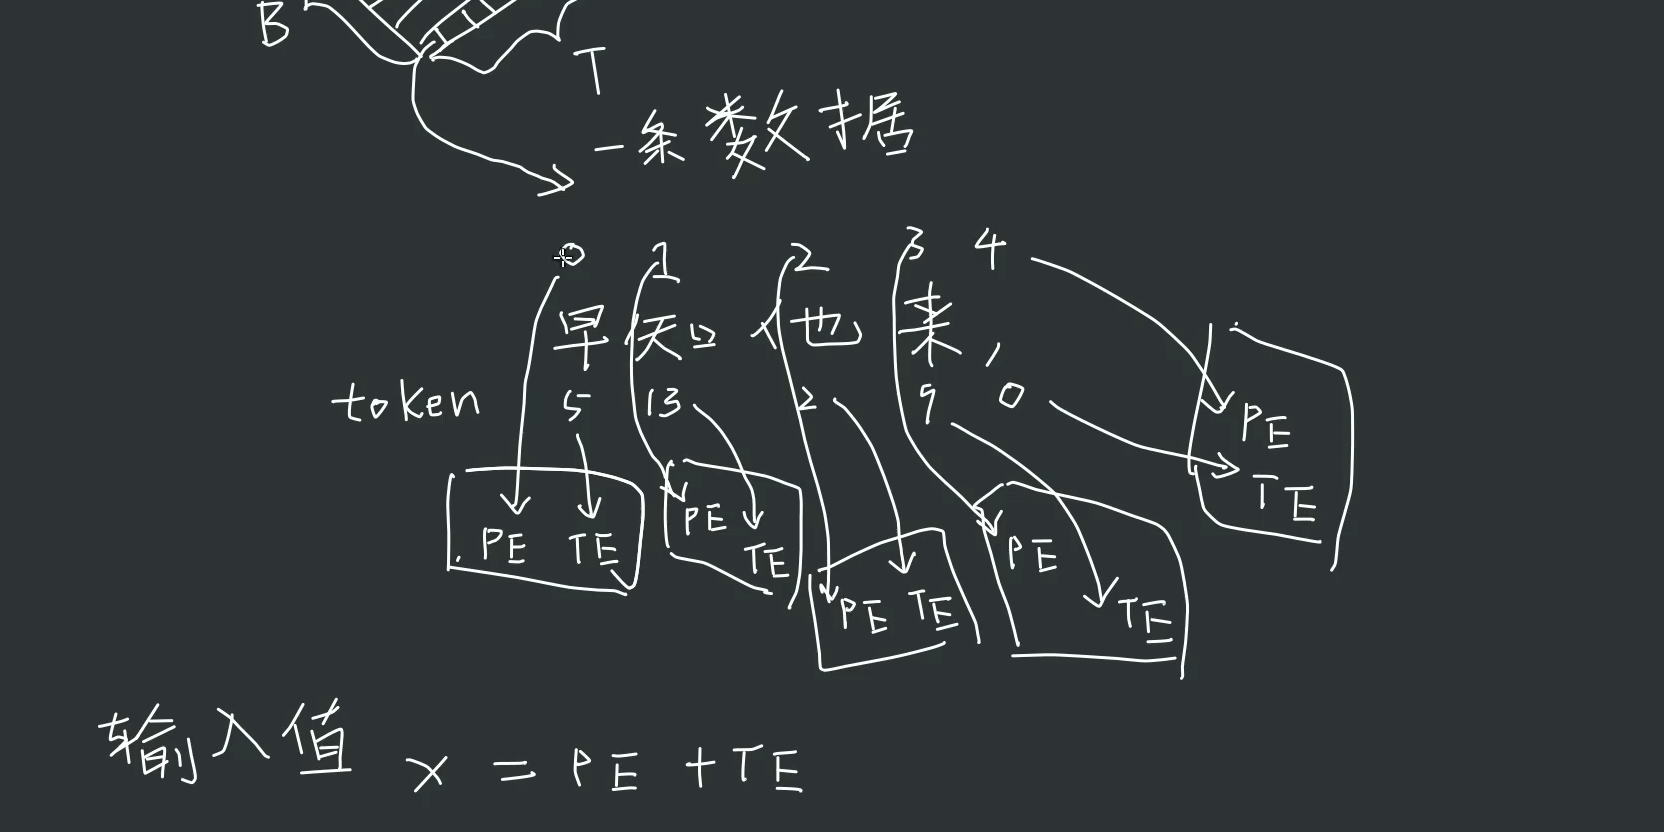 B
T
一条数据
0 1 2 3 4
早 知 他 来 ,
token 5 13 2 9 0
PE TE PE TE PE TE PE TE PE TE
输入值 x = PE + TE